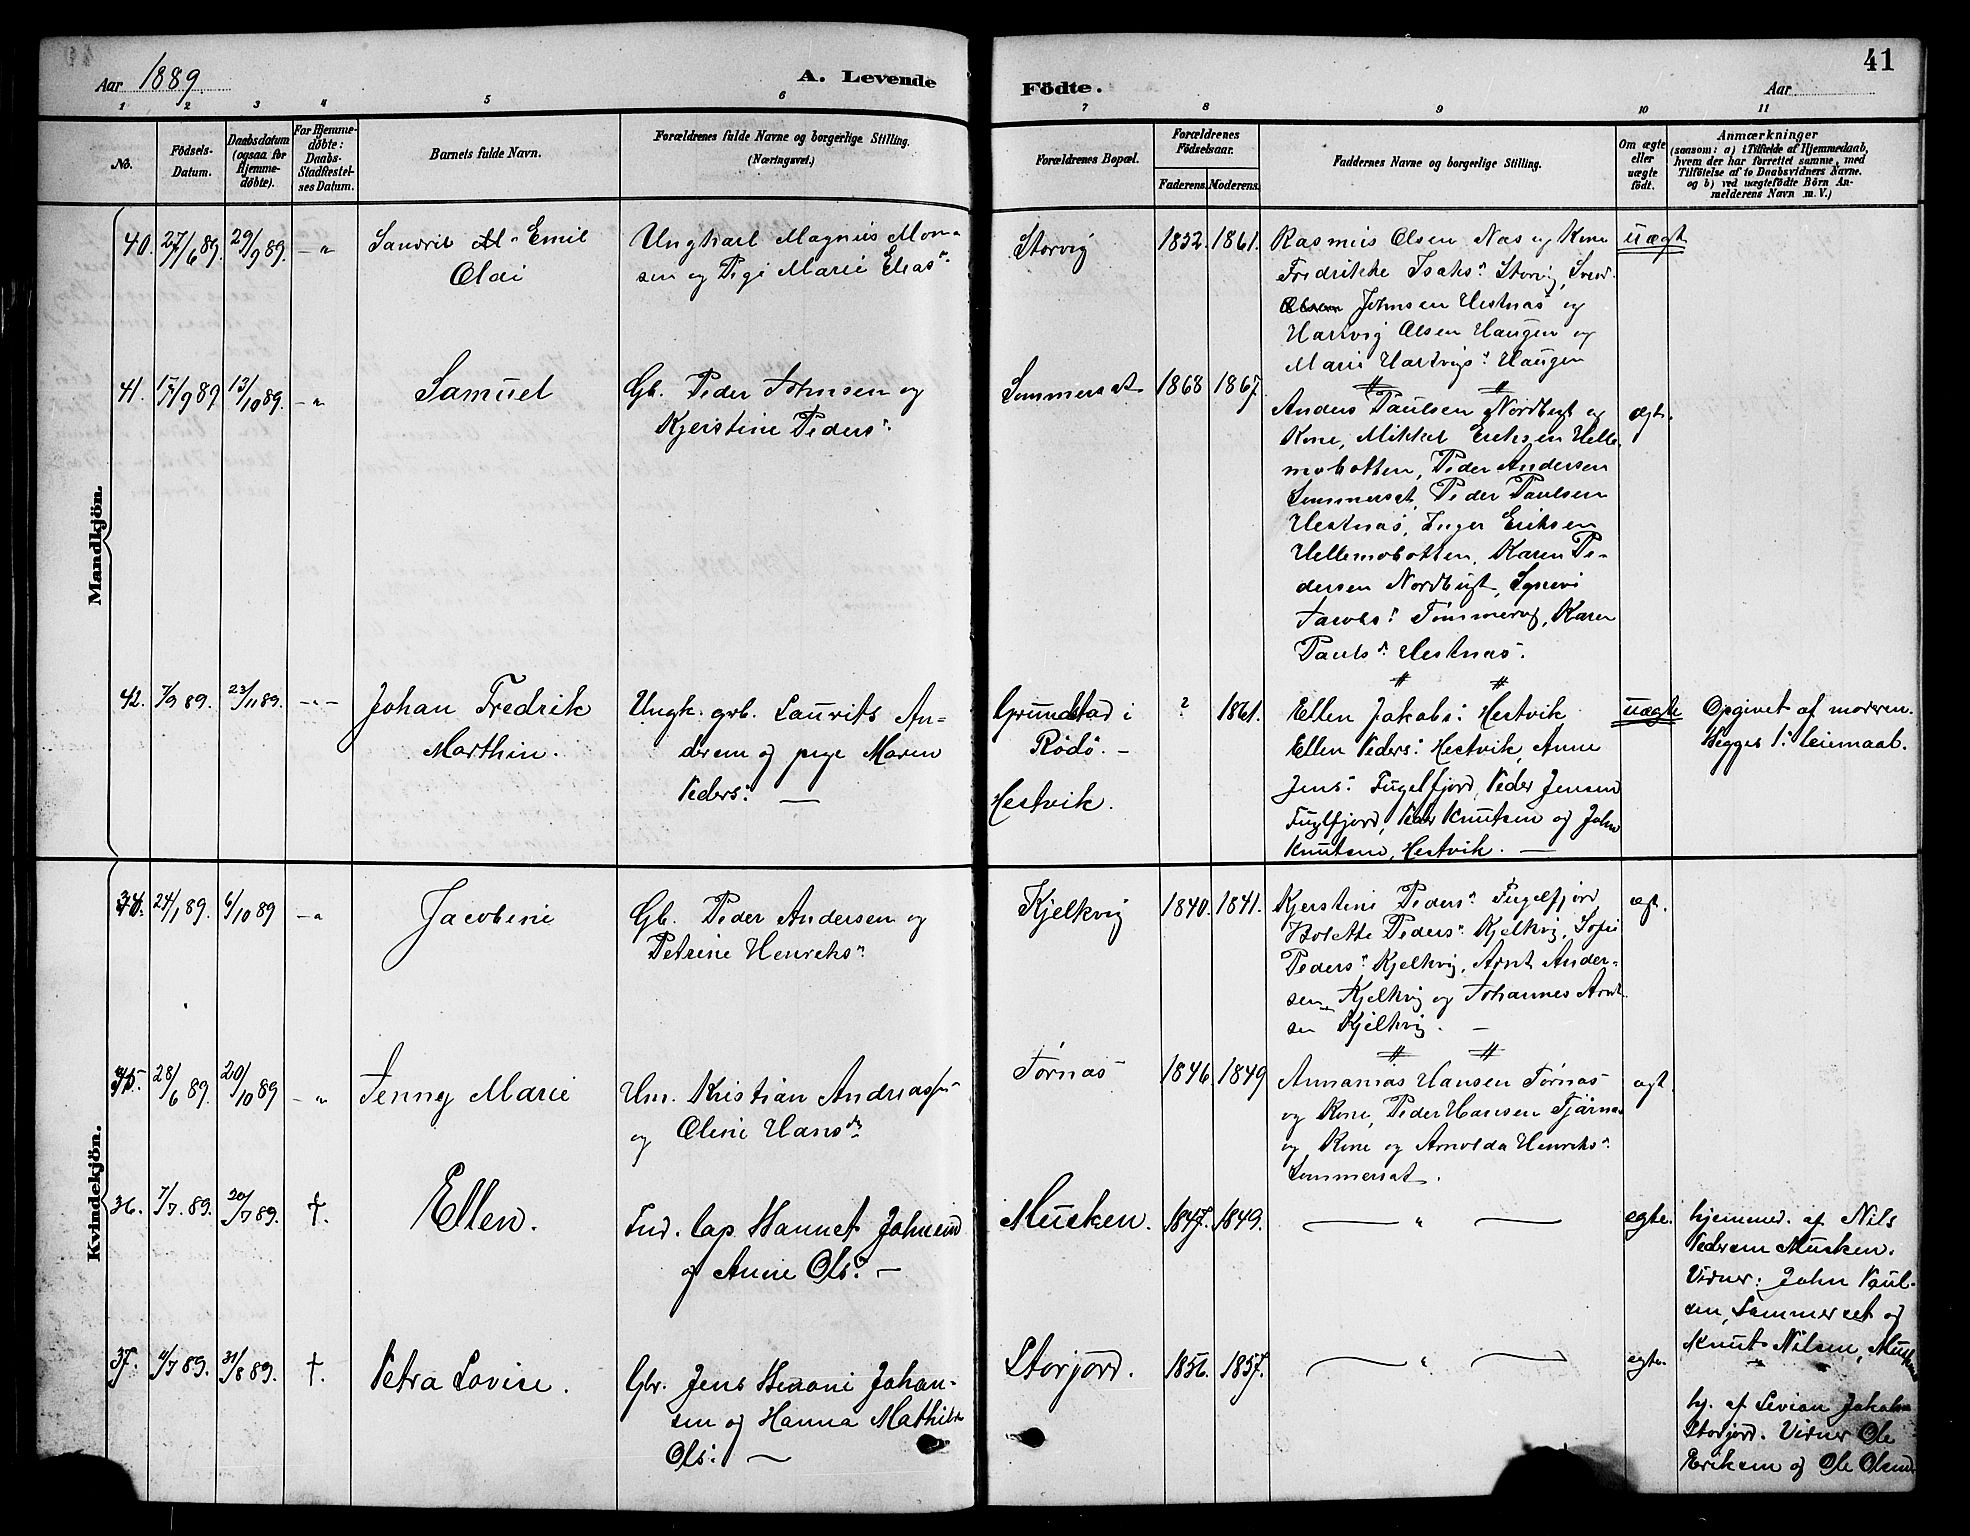 41
Aar 1889.
A. Levende Födte.
Aar
1 2 3 4 5 6 7 8 9 10 11
No.
Födsels-
Datum.
Daabsdatum
(ogsaa for
Hjemme-
döbte).
For Hjemme-
döbte:
Daabs-
Stadfæstel-
ses Datum.
Barnets fulde Navn.
Forældrenes fulde Navne og borgerlige Stilling.
(Næringsvei.)
Forældrenes Bopæl.
Forældrenes
Födselsaar.
Faderens. Moderens.
Faddernes Navne og borgerlige Stilling.
Om ægte
eller
uægte
födt.
Anmærkninger
(saasom: a) i Tilfælde af Hjemmedaab,
hvem der har forrettet samme, med
Tilföielse af to Daabsvidners Navne.
og b) ved uægtefödte Börn An-
melderens Navn m. V.)
Mandkjön.
40.
27/6 89.
29/9 89.
- "
Emil
Olai
Ungkarl Magnus Mon-
sen og Pige Marie Elias:
Storvig
1852. 1861.
Rasmus Olsen Næs og Kone
Fredrikke Isaks: Storvig,
Johnsen Hestnæs og
Hartvig Olsen Haugen og
Marie Hartvigs: Haugen
uægt
41.
17/9 89
13/10 89.
- "
Samuel
Gb. Peder Johnsen og
Kjerstine Peders:
Sommerset
1868 1867.
Anders Paulsen Nordbugt og
Kone, Mikkel Eriksen Helle-
mobotten, Peder Andersen
Sommerset, Peder Paulsen
Hestnæs, Inger Eriksen
Hellemobotten, Karen Pe-
dersen Nordbugt,
Jacobs: Tømmervig, Karen
Pauls: Hestnæs.
ægt.
42.
7/9 89.
23/11 89.
- " -
Johan Fredrik
Marthin.
Ungk. grb. Laurits An-
dersen og pige Maren
Peders: —
Grundstad i
Rödö. -
Hestvik.
? 1861.
Ellen Jakobs: Hestvik
Ellen Peders: Hestvik, Anne
Jens: Fugelfjord, Peder Jensen
Fuglfjord, Peder Knutsen og John
Knutsen, Hestvik. —
uægte
Opgivet af moderen.
Begges 1: leiemaal.
Kvindekjön.
34.
24/1 89.
6/10 89
- "
Jacobine
Gb. Peder Andersen og
Petrine Henriks:
Kjelkvig
1840. 1841.
Kjerstine Peders: Fugelfjord
Bolette Peders: Kjelkvig, Sofie
Peders: Kjelkvig, Arnt Ander-
sen Kjelkvig og Johannes Arnt-
sen Kjelkvig. —
ægt.
35.
28/6 89.
20/10 89
- "
Jenny Marie
Hm. Kristian Andreassen
og Oline Hansd:
Tørnæs
1846 1849
Annanias Hansen Tørnæs
og Kone, Peder Hansen Tjärnæs
og Kone og Arnolda Henriks:
Sommerset.
ægt.
36.
7/7. 89.
20/7 89.
†.
Ellen.
Ind. lap. Hannet Johnsen
og Anne Ols: —
Musken.
1847. 1849.
— " —
egte.
hjemmed. af Nils
Pedersen Musken.
Vidner: John Paul-
sen, Sommerset og
Knut Nilsen, Musken
37.
11/7 89.
31/8 89.
†.
Petra Lovise.
Gbr. Jens Benoni Johan-
sen og Hanna Mathilde
Ols: —
Storjord.
1856. 1857.
— " —
egte.
hj. af Sivian Jakobsen
Storjord. Vidner Ole
Eriksen og Ole Olsen